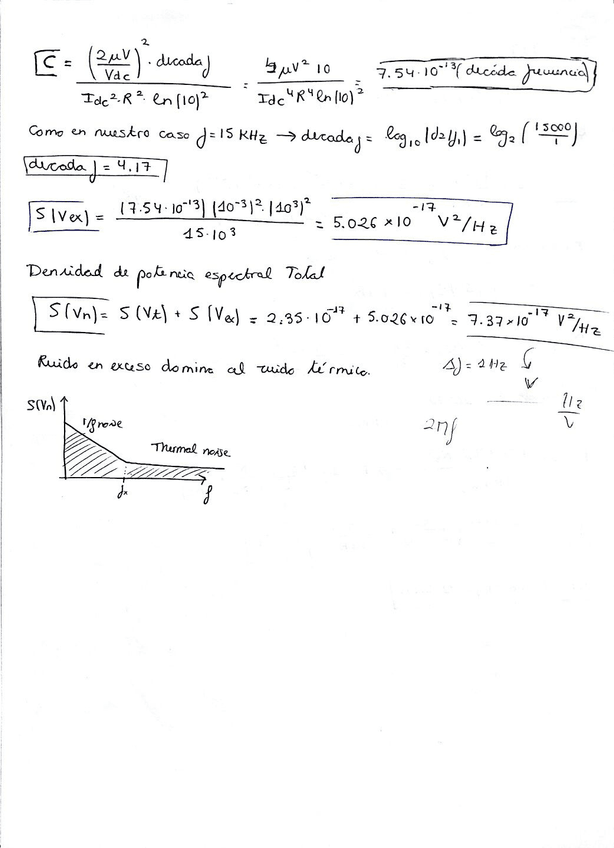 C = (2μV/Vdc)² · decada f / Idc² · R² · ln(10)² = 4μV² 10 / Idc⁴ R⁴ ln(10)² = 7.54·10⁻¹³ (decada frecuencia)
Como en nuestro caso f = 15 KHz → decada f = log₁₀ (f2/f1) = log₂ (15000/1)
decada f = 4.17
S(Vex) = (7.54·10⁻¹³) (10⁻³)² · (10³)² / 15·10³ = 5.026 × 10⁻¹⁷ V²/Hz
Densidad de potencia espectral Total
S(Vn) = S(Vt) + S(Vex) = 2.35·10⁻¹⁷ + 5.026×10⁻¹⁷ = 7.37×10⁻¹⁷ V²/Hz
Ruido en exceso domina al ruido térmico.
Δf = 1Hz
2πf
S(Vn)
1/f noise
Thermal noise
fx
f